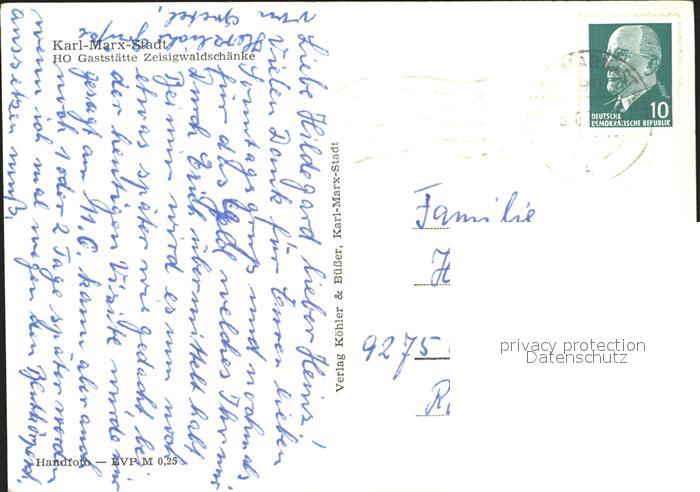 Karl-Marx-Stadt
HO Gaststätte Zeisigwaldschänke
Liebe Hildegard lieber Heinz!
Vielen Dank für Euren lieben
Sonntagsgruß und nochmals
für das Geld welches Ihr mir
durch Erich übermittelt habt
Bei mir wird es nun noch
etwas später wie gedacht bei
der heutigen Visite wurde mir
gesagt am kann aber auch
noch 1 oder 2 Tage später werden
wenn ich mal wegen den
aussetzen muß.
Herzliche Grüße
von
Handfoto — EVP M 0,25
Verlag Köhler & Büßer, Karl-Marx-Stadt
DEUTSCHE
DEMOKRATISCHE REPUBLIK
10
Familie
9275
privacy protection
Datenschutz